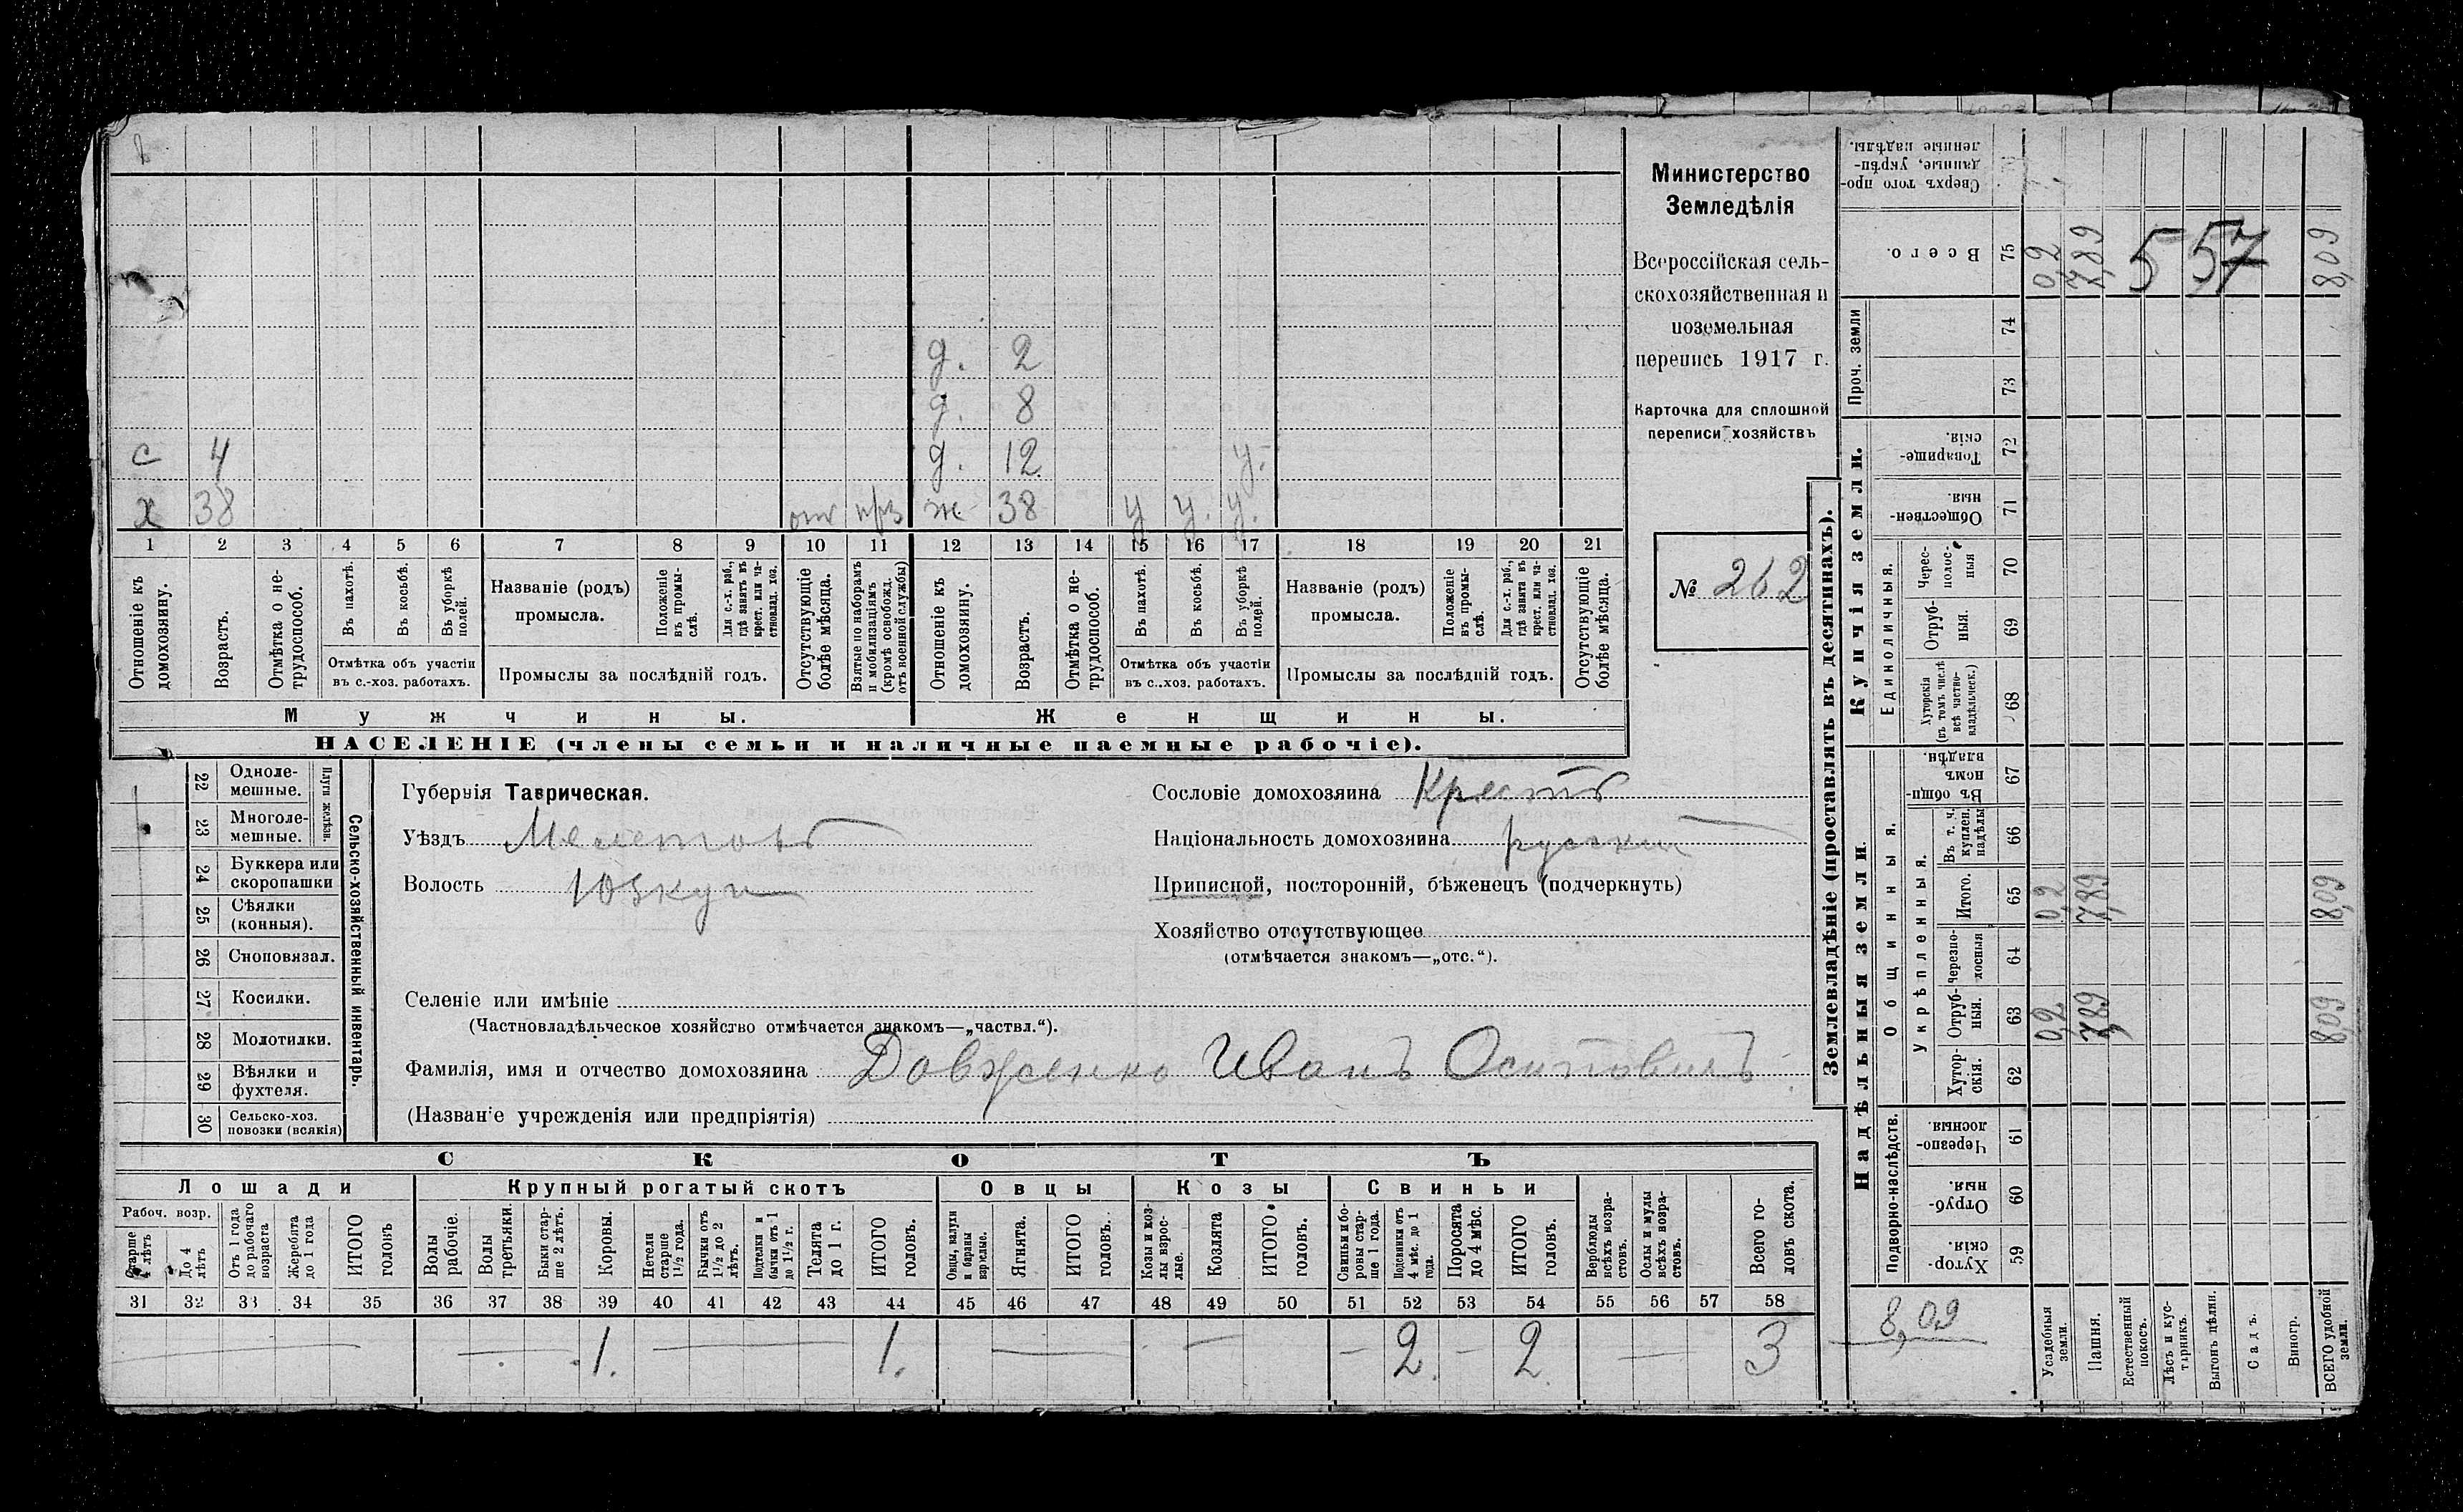 д. 2
д. 8
с 4 д. 12 у.
х 38 отс прз ж 38 у у. у.
1 2 3 4 5 6 7 8 9 10 11 12 13 14 15 16 17 18 19 20 21
Отношеніе къ домохозяину.
Возрастъ.
Отмѣтка о не-трудоспособ.
Въ пахотѣ.
Въ косьбѣ.
Въ уборкѣ полей.
Отмѣтка объ участіи
въ с.-хоз. работахъ.
Названіе (родъ)
промысла.
Положеніе въ промы-слѣ.
Для с.-х. раб., гдѣ занятъ въ крест. или ча-стновлад. хоз.
Промыслы за послѣдній годъ.
Отсутствующіе болѣе мѣсяца.
Взятые по наборамъ и мобилизаціямъ (кромѣ освобожд. отъ военной службы)
Отношеніе къ домохозяину.
Возрастъ.
Отмѣтка о не-трудоспособ.
Въ пахотѣ.
Въ косьбѣ.
Въ уборкѣ полей.
Отмѣтка объ участіи
въ с.-хоз. работахъ.
Названіе (родъ)
промысла.
Положеніе въ промы-слѣ.
Для с.-х. раб., гдѣ занята въ крест. или ча-стновлад. хоз.
Промыслы за послѣдній годъ.
Отсутствующіе болѣе мѣсяца.
Мужчины. Женщины.
НАСЕЛЕНІЕ (члены семьи и наличные наемные рабочіе).
Министерство
Земледѣлія
Всероссійская сель-
скохозяйственная и
поземельная
перепись 1917 г.
Карточка для сплошной
переписи хозяйствъ
№ 262
22 Одноле-мешные.
23 Многоле-мешные.
Плуги желѣзн.
24 Буккера или скоропашки
25 Сѣялки (конныя).
26 Сноповязал.
27 Косилки.
28 Молотилки.
29 Вѣялки и фухтеля.
30 Сельско-хоз. повозки (всякія)
Сельско-хозяйственный инвентарь.
Губернія Таврическая.
Уѣздъ Мелетовъ
Волость Юзкуи
Сословіе домохозяина Крестъ
Національность домохозяина русский
Приписной, посторонній, бѣженец (подчеркнуть)
Хозяйство отсутствующее
(отмѣчается знакомъ—„отс.“).
Селеніе или имѣніе
(Частновладѣльческое хозяйство отмѣчается знакомъ—„частвл.“).
Фамилія, имя и отчество домохозяина Довженко Иванъ Осиповичъ
(Названіе учрежденія или предпріятія)
СКОТЪ
Лошади Крупный рогатый скотъ Овцы Козы Свиньи
Рабоч. возр.
Старше 4 лѣтъ
До 4 лѣтъ
Отъ 1 года до рабочаго возраста
Жеребята до 1 года
ИТОГО головъ
Волы рабочіе.
Волы третьяки.
Быки стар-ше 2 лѣтъ.
Коровы.
Нетели старше 1½ года.
Бычки отъ 1½ до 2 лѣтъ.
Подтелки и бычки отъ 1 до 1½ г.
Телята до 1 г.
ИТОГО головъ.
Овцы, валухи и бараны взрослые.
Ягнята.
ИТОГО головъ.
Козы и коз-лы взрос-лые.
Козлята
ИТОГО головъ.
Свиньи и бо-ровы стар-ше 1 года.
Подсвинки отъ 4 мѣс. до 1 года.
Поросята до 4 мѣс.
ИТОГО головъ.
Верблюды всѣхъ возра-стовъ.
Ослы и мулы всѣхъ возра-стовъ.
Всего го-ловъ скота.
31 32 33 34 35 36 37 38 39 40 41 42 43 44 45 46 47 48 49 50 51 52 53 54 55 56 57 58
— — 1. — 1. — — — 2. — 2 — 3
Землевладѣніе (проставлять въ десятинахъ).
Сверхъ того про-данные, укрѣп-ленные надѣлы.
Всего. 75 0,2 7,89 557 8,09
Проч. земли 74
73
Купчія земли.
Товарище-скія. 72
Обществен-ныя. 71
Единоличныя.
Черес-полос-ныя 70
Отруб-ныя. 69
Хуторскія (въ томъ числѣ всѣ частно-владѣльческ.) 68
Надѣльныя земли.
Общинныя.
Въ общи-номъ владѣн. 67
Укрѣпленныя.
Въ т. ч. куплен. надѣлы 66
Итого. 65 0,2 7,89 8,09
Черезпо-лосныя 64
Отруб-ныя. 63 0,2 7,89 8,09
Хутор-скія. 62
Подворно-наслѣдств.
Черезпо-лосныя. 61
Отруб-ныя. 60
Хутор-скія. 59
8,09
Усадебныя земли.
Пашня.
Естественный покосъ.
Лѣсъ и кус-тарникъ.
Выгонъ цѣлин.
Садъ.
Виногр.
ВСЕГО удобной земли.